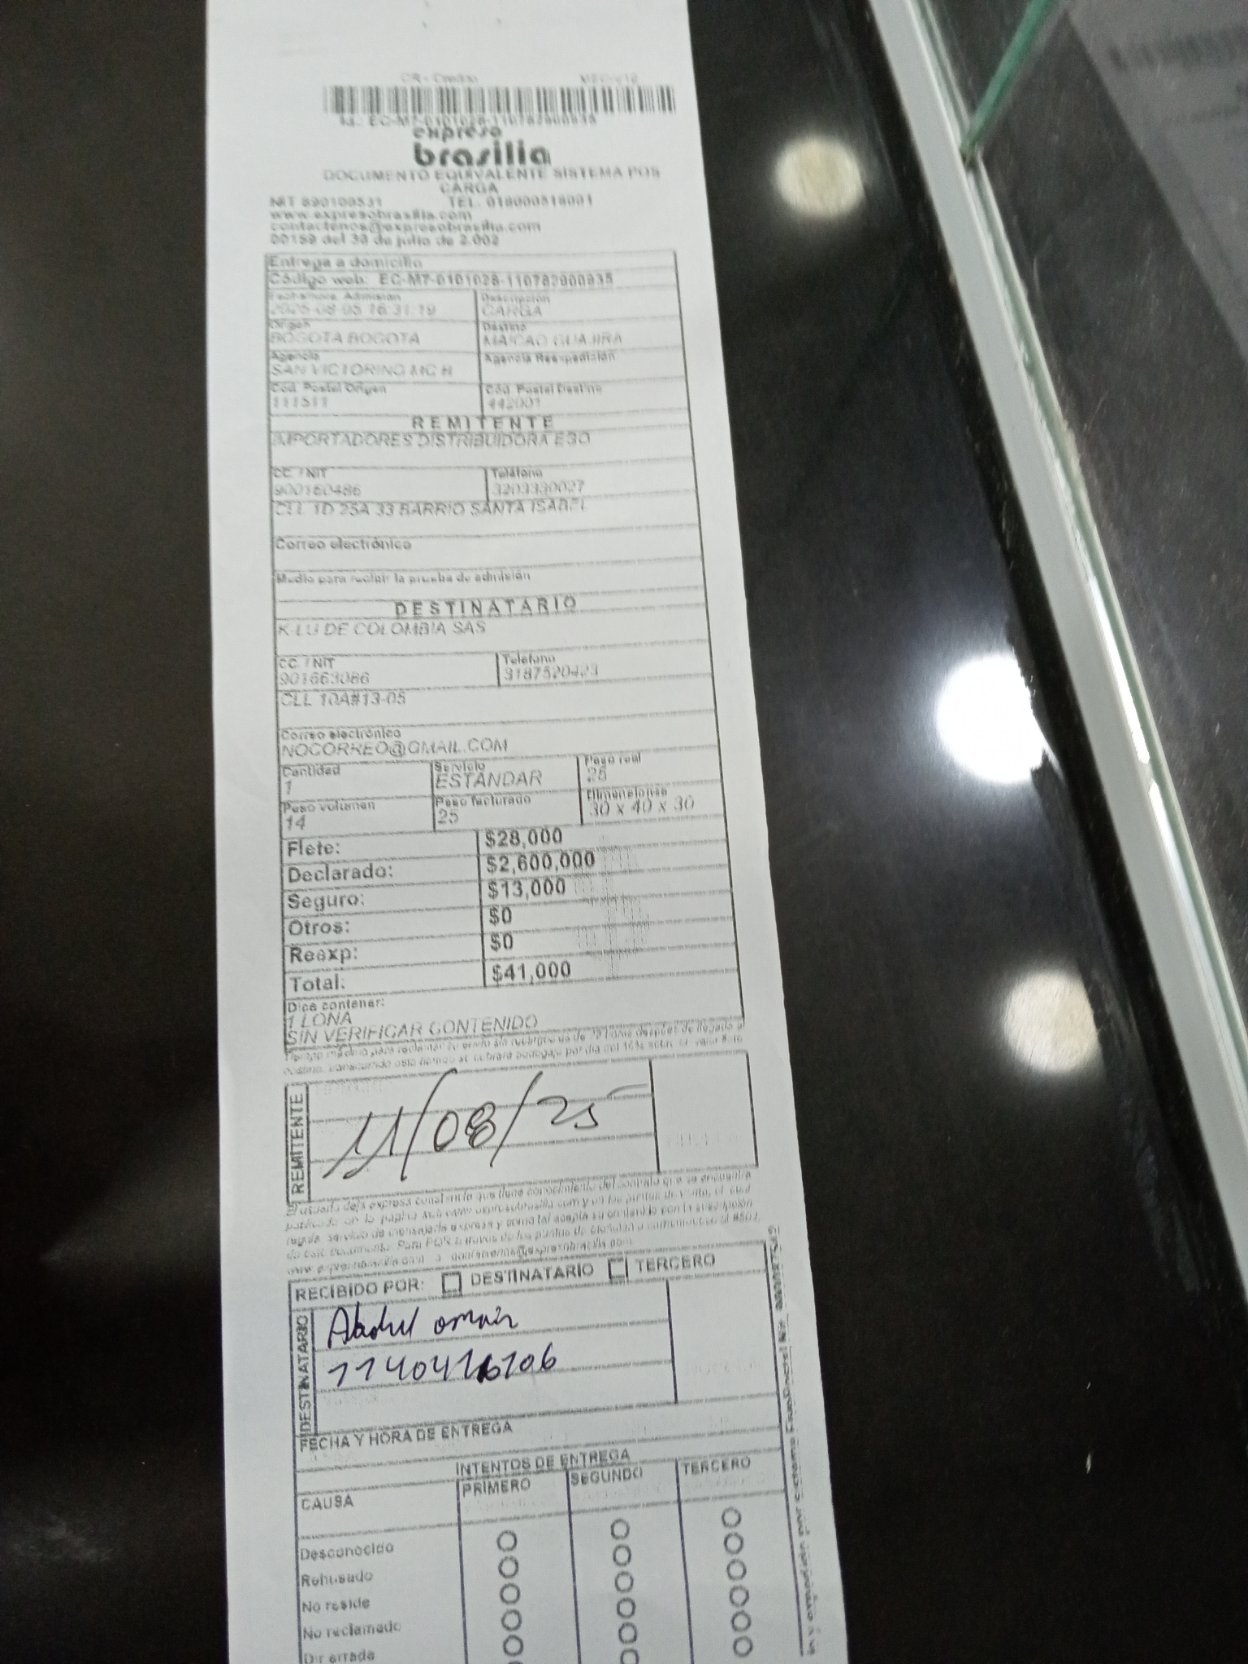 CR - Credito
Id.: EC-M7-0101028-110782900835
expreso
brasilia
DOCUMENTO EQUIVALENTE SISTEMA POS
CARGA
NIT 890100531 TEL. 018000518001
www.expresobrasilia.com
contactenos@expresobrasilia.com
00159 del 30 de julio de 2.002
Entrega a domicilio
Código web: EC-M7-0101028-110782900835
Fecha-hora Admisión Descripción
2025-08-05 16:31:19 CARGA
Origen Destino
BOGOTA BOGOTA MAICAO GUAJIRA
Agencia Agencia Reexpedición
SAN VICTORINO MC H
Cód. Postal Origen Cód. Postal Destino
111511 442001
REMITENTE
IMPORTADORES DISTRIBUIDORA EBO
CC. / NIT Teléfono
900160486 3203330027
CLL 1D 25A 33 BARRIO SANTA ISABEL
Correo electrónico
Medio para recibir la prueba de admisión
DESTINATARIO
K-LU DE COLOMBIA SAS
CC. / NIT Teléfono
901663086 3187520423
CLL 10A#13-05
Correo electrónico
NOCORREO@GMAIL.COM
Cantidad Servicio Peso real
1 ESTANDAR 25
Peso volumen Peso facturado Dimensiones
14 25 30 x 40 x 30
Flete: $28,000
Declarado: $2,600,000
Seguro: $13,000
Otros: $0
Reexp: $0
Total: $41,000
Dice contener:
1 LONA
SIN VERIFICAR CONTENIDO
REMITENTE
11/08/25
RECIBIDO POR: DESTINATARIO TERCERO
DESTINATARIO
Abdul omair
1140416106
FECHA Y HORA DE ENTREGA
INTENTOS DE ENTREGA
CAUSA PRIMERO SEGUNDO TERCERO
Desconocido
Rehusado
No reside
No reclamado
Dir errada